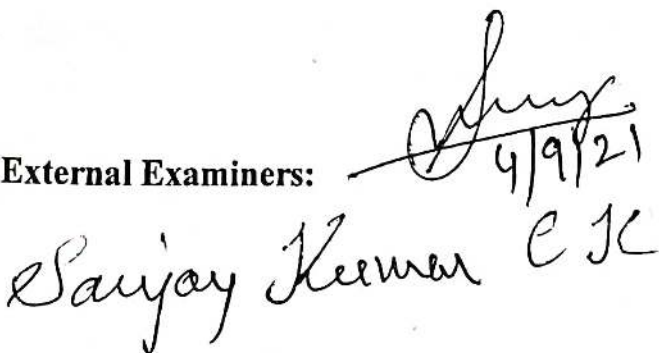 External Examiners:
4/9/21
Sanjay Kumar C K